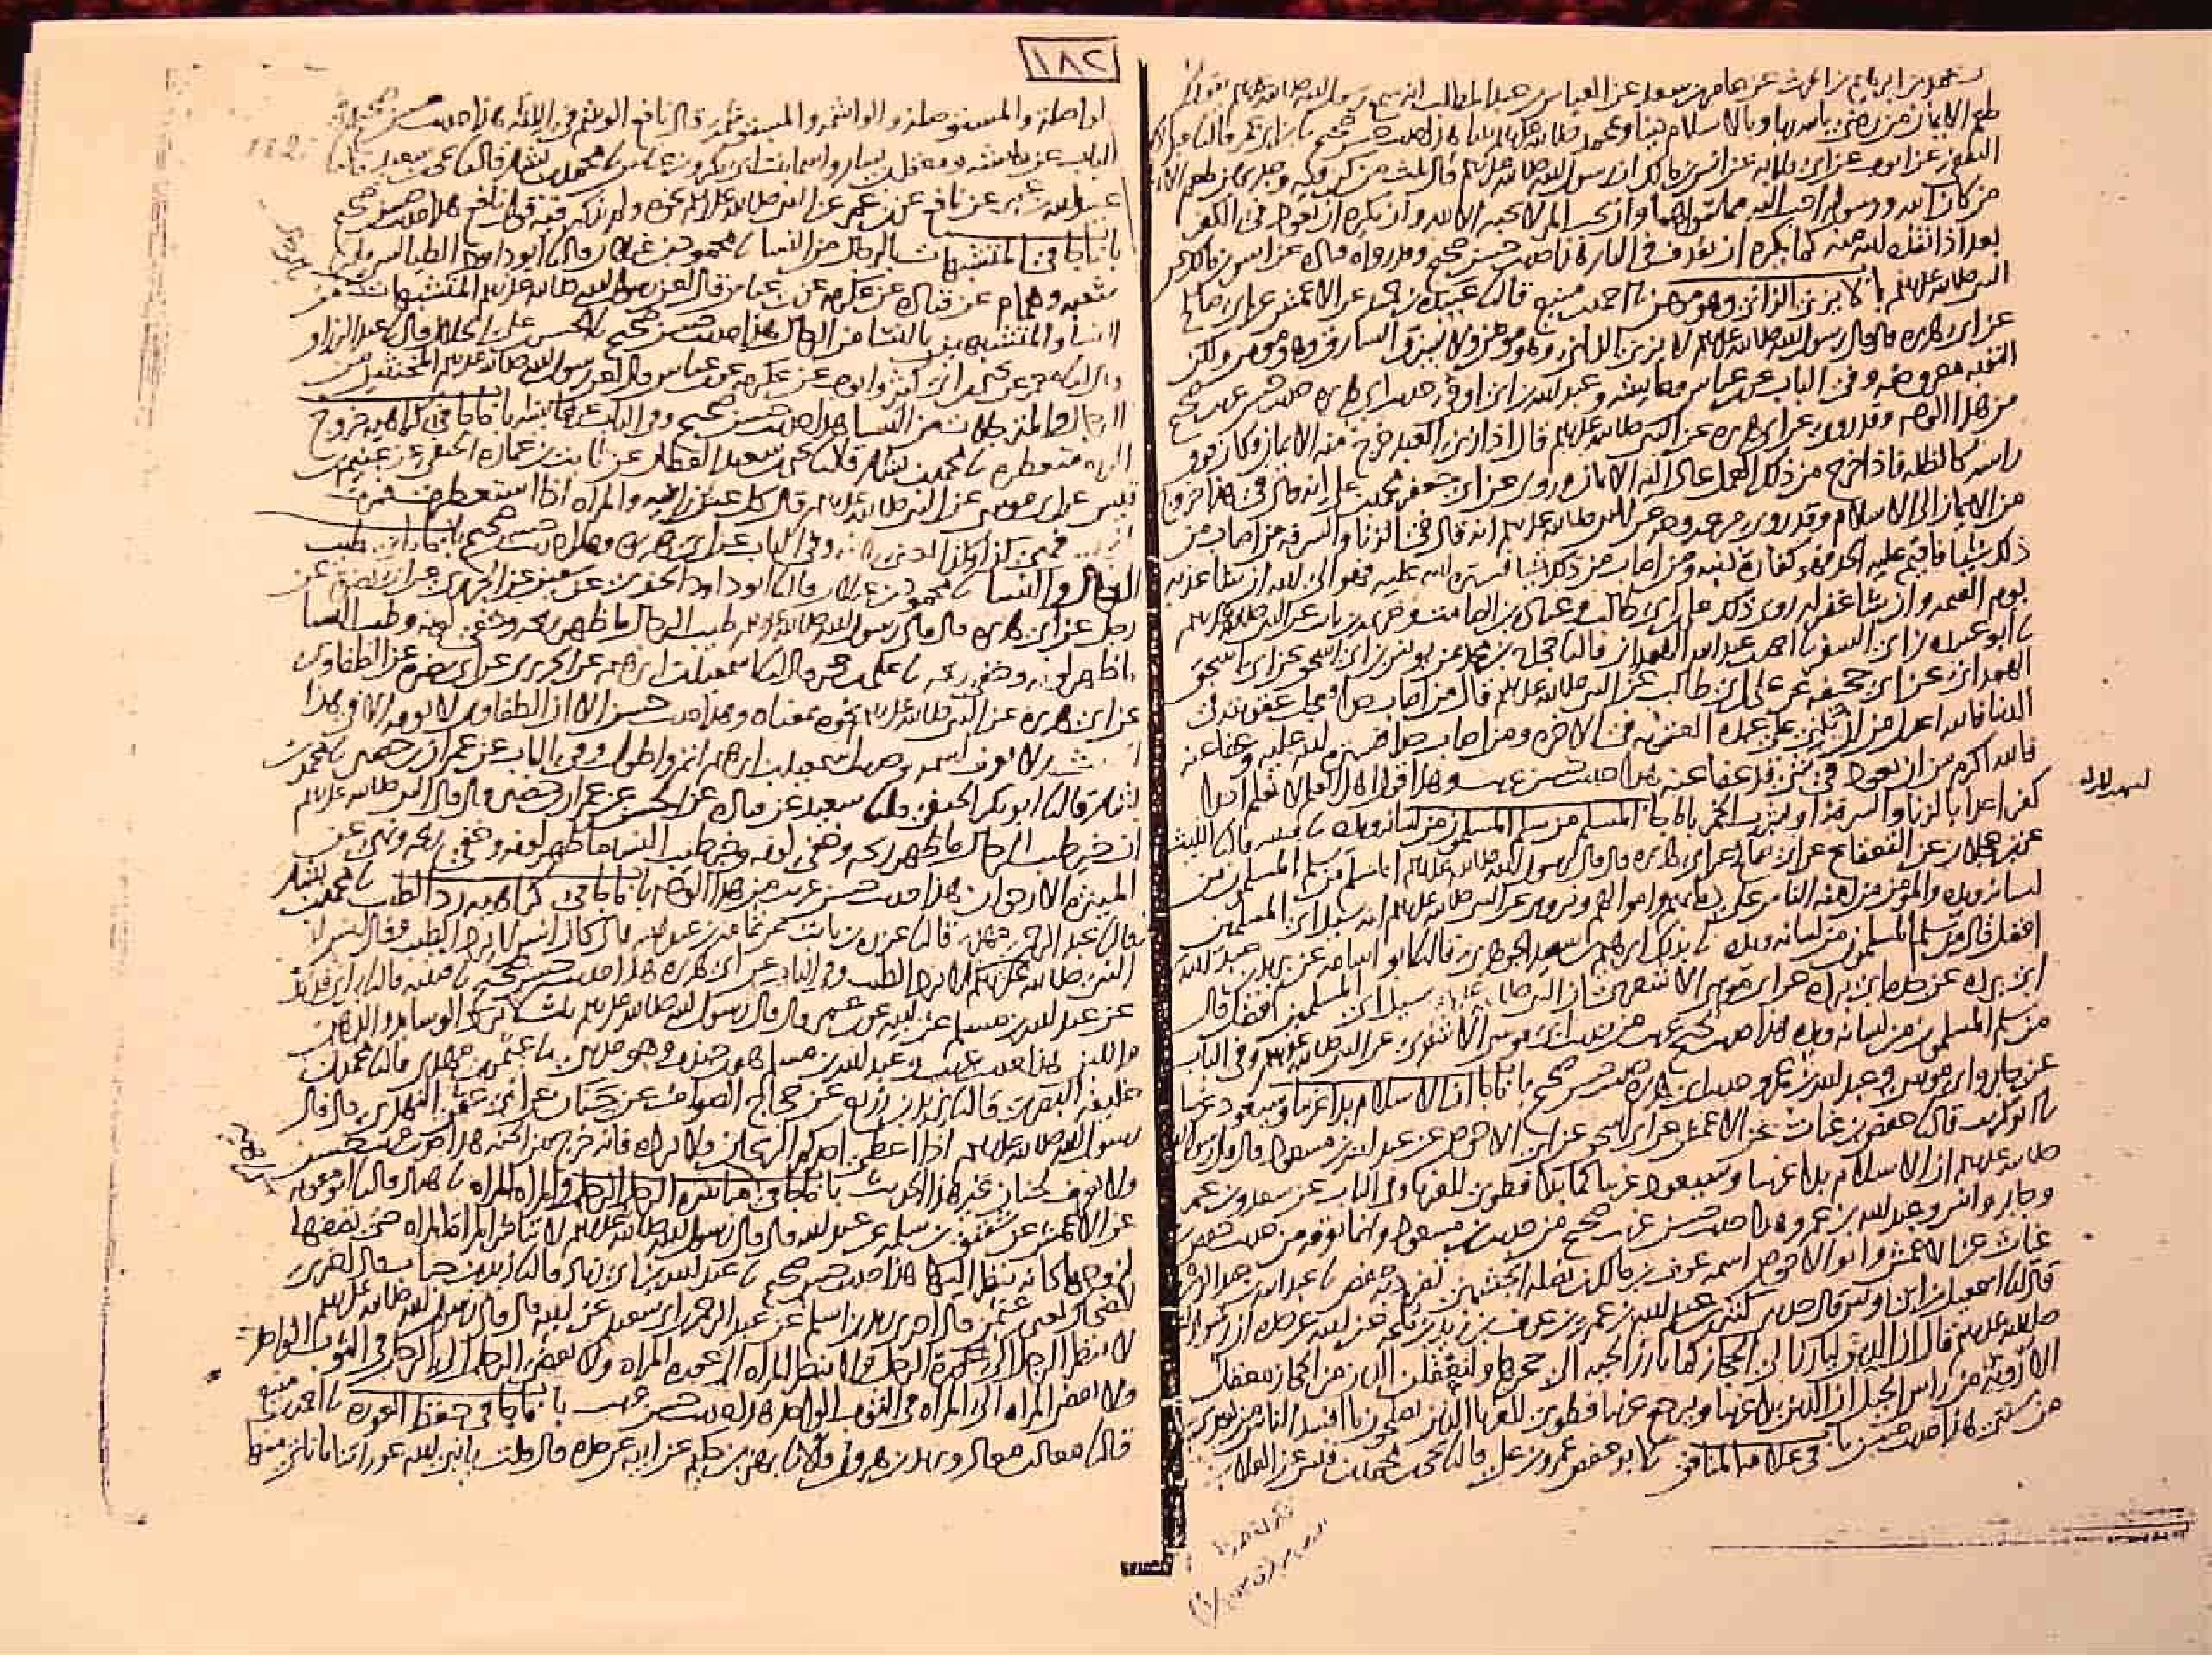 ١٨٢
محمد بن ابراهيم بن الحرث عن عامر بن سعد عن العباس بن عبد المطلب انه سمع رسول الله صلى الله عليه وسلم يقول
طعم الايمان من رضي بالله ربا وبالاسلام دينا وبمحمد نبيا هذا حديث حسن صحيح
عن ايوب عن ابي قلابه عن انس بن مالك ان رسول الله صلى الله عليه وسلم قال ثلث من كن فيه وجد بهن طعم
من كان الله ورسوله احب اليه مما سواهما وان يحب المرء لا يحبه الا لله وان يكره ان يعود في الكفر
بعد اذ انقذه الله منه كما يكره ان يقذف في النار هذا حديث حسن صحيح وقد رواه قتاده عن انس بن مالك عن
النبي صلى الله عليه وسلم باب لا يزني الزاني وهو مومن احمد بن منيع قال عبيده بن حميد عن الاعمش عن ابي صالح
عن ابي هريره قال قال رسول الله صلى الله عليه وسلم لا يزني الزاني وهو مومن ولا يسرق السارق وهو مومن ولكن
التوبه معروضه وفي الباب عن ابن عباس وعايشه وعبد الله بن ابي اوفى حديث ابي هريره حديث حسن غريب صحيح
من هذا الوجه وقد روي عن ابي هريره عن النبي صلى الله عليه وسلم قال اذا زنى العبد خرج منه الايمان وكان فوق
راسه كالظله فاذا خرج من ذلك العمل عاد اليه الايمان وروي عن ابي جعفر محمد بن علي انه قال في هذا خروج
من الايمان الى الاسلام وقد روي من غير وجه عن النبي صلى الله عليه وسلم انه قال في الزنا والسرقه من اصاب من
ذلك شيا فاقيم عليه الحد فهو كفارة ذنبه ومن اصاب من ذلك شيا فستره الله عليه فهو الى الله ان شا عذبه
يوم القيمه وان شا غفر له روى ذلك علي بن ابي طالب وعباده بن الصامت وخزيمه بن ثابت عن النبي صلى الله عليه وسلم
ابو عبيده بن ابي السفر احمد بن عبد الله الهمداني قال حجاج بن محمد عن يونس بن ابي اسحق عن ابي اسحق
الهمداني عن ابي جحيفه عن علي بن ابي طالب عن النبي صلى الله عليه وسلم قال من اصاب حدا فعجل عقوبته في
الدنيا فالله اعدل من ان يثني على عبده العقوبه في الاخره ومن اصاب حدا فستره الله عليه وعفا عنه
فالله اكرم من ان يعود في شي قد عفا عنه هذا حديث حسن غريب وهذا قول اهل العلم لا نعلم احدا
كفر احدا بالزنا والسرقه او بشرب الخمر باب ما جا المسلم من سلم المسلمون من لسانه ويده قتيبه قال الليث
عن ابن عجلان عن القعقاع عن ابي صالح عن ابي هريره قال قال رسول الله صلى الله عليه وسلم المسلم من سلم المسلمون من
لسانه ويده والمومن من امنه الناس على دمائهم واموالهم ويروى عن النبي صلى الله عليه وسلم انه سيل اي المسلمين
افضل قال من سلم المسلمون من لسانه ويده بذلك ابرهيم بن سعيد الجوهري قال ابو اسامه عن بريد بن عبد الله
ابن ابي برده عن جده ابي برده عن ابي موسى الاشعري ان النبي صلى الله عليه سيل اي المسلمين افضل قال
من سلم المسلمون من لسانه ويده هذا حديث صحيح غريب من حديث ابي موسى الاشعري عن النبي صلى الله عليه وسلم وفي الباب
عن جابر وابي موسى وعبد الله بن عمرو حديث ابي هريره حديث حسن صحيح باب ما جا ان الاسلام بدا غريبا وسيعود غريبا
ابو كريب قال حفص بن غياث عن الاعمش عن ابي اسحق عن ابي الاحوص عن عبد الله بن مسعود قال قال رسول الله
صلى الله عليه وسلم ان الاسلام بدا غريبا وسيعود غريبا كما بدا فطوبى للغربا وفي الباب عن سعد وابن عمر
وجابر وانس وعبد الله بن عمرو هذا حديث حسن غريب صحيح من حديث ابن مسعود وانما نعرفه من حديث حفص بن
غياث عن الاعمش وابو الاحوص اسمه عوف بن مالك بن نضله الجشمي تفرد به حفص عبد الله بن عبد الرحمن
قال اسمعيل بن ابي اويس قال حدثني كثير بن عبد الله بن عمرو بن عوف بن زيد بن ملحه عن ابيه عن جده ان رسول الله
صلى الله عليه وسلم قال ان الدين ليارز الى الحجاز كما تارز الحيه الى جحرها وليعقلن الدين من الحجاز معقل
الارويه من راس الجبل ان الدين بدا غريبا ويرجع غريبا فطوبى للغربا الذين يصلحون ما افسد الناس من بعدي
من سنتي هذا حديث حسن باب في علامة المنافق ابو حفص عمرو بن علي قال يحيى بن محمد بن قيس عن العلا
الواصله والمستوصله والواشمه والمستوشمه وقال نافع الوشم في اللثه هذا حديث حسن صحيح
الباب عن عايشه ومعقل بن يسار واسما بنت ابي بكر وابن عباس محمد بن بشار قال يحيى بن سعيد قال
عبيد الله بن عمر عن نافع عن ابن عمر عن النبي صلى الله عليه وسلم نحوه ولم يذكر فيه قول نافع هذا حديث حسن صحيح
باب ما جا في المتشبهات بالرجال من النسا محمود بن غيلان قال ابو داود الطيالسي
شعبه وهمام عن قتاده عن عكرمه عن ابن عباس قال لعن رسول الله صلى الله عليه وسلم المتشبهات من
النسا والمتشبهين بالنسا من الرجال هذا حديث حسن صحيح الحسن بن علي الخلال قال عبد الرزاق
معمر عن يحيى بن ابي كثير وايوب عن عكرمه عن ابن عباس قال لعن رسول الله صلى الله عليه وسلم المخنثين من
الرجال والمترجلات من النسا هذا حديث حسن صحيح وفي الباب عن عايشه باب ما جا في كراهيه خروج
المراه متعطره محمد بن بشار قال يحيى بن سعيد القطان عن ثابت بن عماره الحنفي عن غنيم بن
قيس عن ابي موسى عن النبي صلى الله عليه وسلم قال كل عين زانيه والمراه اذا استعطرت فمرت
فهي كذا وكذا وفي الباب عن ابي هريره وهذا حديث حسن صحيح باب ما جا في طيب
الرجال والنسا محمود بن غيلان قال ابو داود الحفري عن سفين عن الجريري عن ابي نضره عن
رجل عن ابي هريره قال قال رسول الله صلى الله عليه وسلم طيب الرجال ما ظهر ريحه وخفي لونه وطيب النسا
ما ظهر لونه وخفي ريحه علي بن حجر قال اسمعيل بن ابرهيم عن الجريري عن ابي نضره عن الطفاوي
عن ابي هريره عن النبي صلى الله عليه وسلم نحوه بمعناه وهذا حديث حسن الا ان الطفاوي لا نعرفه الا في هذا
الحديث ولا نعرف اسمه وحديث اسمعيل بن ابرهيم اتم واطول وفي الباب عن عمران بن حصين محمد بن
بشار قال ابو بكر الحنفي سعيد عن قتاده عن الحسن عن عمران بن حصين قال قال النبي صلى الله عليه وسلم
ان خير طيب الرجال ما ظهر ريحه وخفي لونه وخير طيب النسا ما ظهر لونه وخفي ريحه ونهى عن
الميثره الارجوان هذا حديث حسن غريب من هذا الوجه باب ما جا في كراهيه رد الطيب محمد بن بشار
قال عبد الرحمن بن مهدي قال عزره بن ثابت عن ثمامه بن عبد الله قال كان انس لا يرد الطيب وقال انس ان
النبي صلى الله عليه وسلم كان لا يرد الطيب وفي الباب عن ابي هريره هذا حديث حسن صحيح قتيبه قال ابن ابي فديك
عن عبد الله بن مسلم عن ابيه عن ابن عمر قال قال رسول الله صلى الله عليه وسلم ثلث لا ترد الوسايد والدهن
واللبن هذا حديث غريب وعبد الله بن مسلم هو ابن جندب وهو مديني عثمن بن مهدي قال محمد بن
خليفه البصري قال يزيد بن زريع عن حجاج الصواف عن حنان عن ابي عثمن النهدي قال قال
رسول الله صلى الله عليه وسلم اذا اعطي احدكم الريحان فلا يرده فانه خرج من الجنه هذا حديث غريب حسن
ولا نعرف لحنان غير هذا الحديث باب ما جا في مباشره الرجل الرجل والمراه المراه هناد قال ابو معويه
عن الاعمش عن شقيق بن سلمه عن عبد الله قال قال رسول الله صلى الله عليه وسلم لا تباشر المراه المراه حتى تصفها
لزوجها كانه ينظر اليها هذا حديث حسن صحيح عبد الله بن ابي زياد قال زيد بن حباب قال اخبرني
الضحاك يعني ابن عثمن قال اخبرني زيد بن اسلم عن عبد الرحمن بن ابي سعيد عن ابيه قال قال رسول الله صلى الله عليه وسلم
لا ينظر الرجل الى عورة الرجل ولا تنظر المراه الى عورة المراه ولا يفضي الرجل الى الرجل في الثوب الواحد
ولا تفضي المراه الى المراه في الثوب الواحد هذا حديث حسن غريب باب ما جا في حفظ العوره احمد بن منيع
قال معاذ بن معاذ ويزيد بن هرون قالا بهز بن حكيم عن ابيه عن جده قال قلت يا نبي الله عوراتنا ما ناتي منها